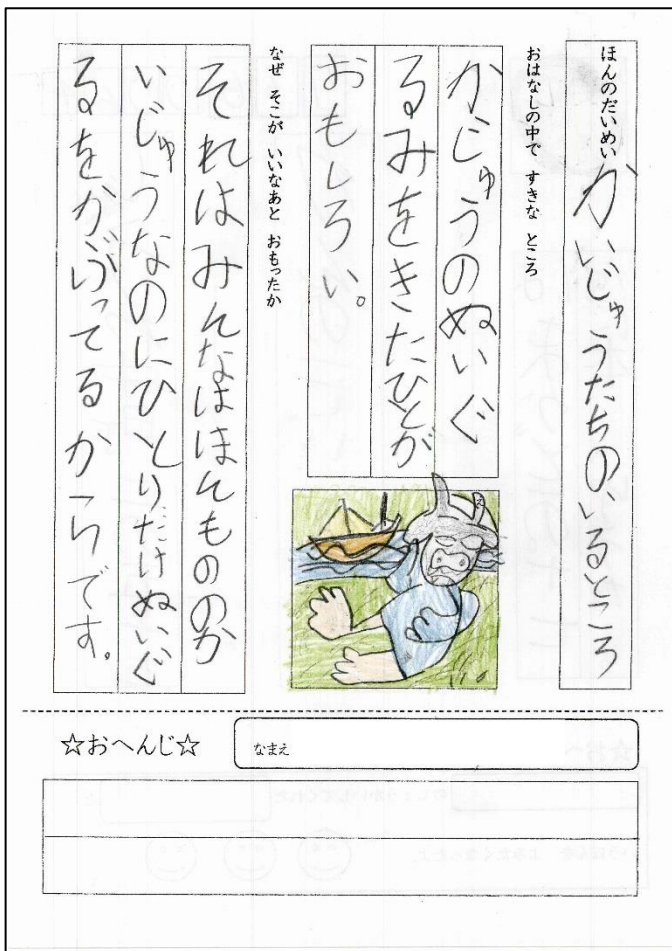 ほんのだいめい
かいじゅうたちのいるところ
おはなしの中で すきな ところ
かじゅうのぬいぐ
るみをきたひとが
おもしろい。
なぜ そこが いいなあと おもったか
それはみんなはほんもののか
いじゅうなのにひとりだけぬいぐ
るをかぶってるからです。
☆おへんじ☆
なまえ